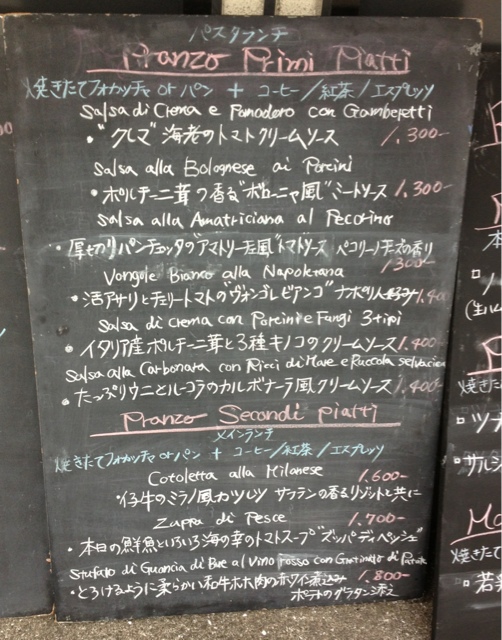 パスタランチ
Pranzo Primi Piatti
焼きたてフォカッチャ or パン + コーヒー/紅茶/エスプレッソ
Salsa di Crema e Pomodoro con Gamberetti
・"クレマ" 海老のトマトクリームソース 1.300-
Salsa alla Bolognese ai Porcini
・ポルチーニ茸の香る"ボローニャ風"ミートソース 1.300-
Salsa alla Amatriciana al Pecorino
・厚切りパンチェッタの"アマトリチャーナ風"トマトソース ペコリーノチーズの香り
1300-
Vongole Bianco alla Napoletana
・活アサリとチェリートマトの"ヴォンゴレビアンコ" ナポリ 1.400
Salsa di Crema con Porcini e Fungi 3tipi
・イタリア産ポルチーニ茸と3種キノコのクリームソース 1.400-
Salsa alla Carbonata con Ricci di Mare e Ruccola selvatica
・たっぷりウニとルーコラのカルボナーラ風クリームソース 1.400-
Pranzo Secondi Piatti
メインランチ
焼きたてフォカッチャ or パン + コーヒー/紅茶/エスプレッソ
Cotoletta alla Milanese 1.600-
・仔牛のミラノ風カツレツ サフランの香るリゾットと共に
Zuppa di Pesce 1.700-
・本日の鮮魚といろいろ海の幸のトマトスープ"ズッパディペッシェ"
Stufato di Guancia di Bue al Vino rosso con Gratinato di Patate
・とろけるように柔らかい和牛ホホ肉の赤ワイン煮込み 1.800-
ポテトのグラタン添え